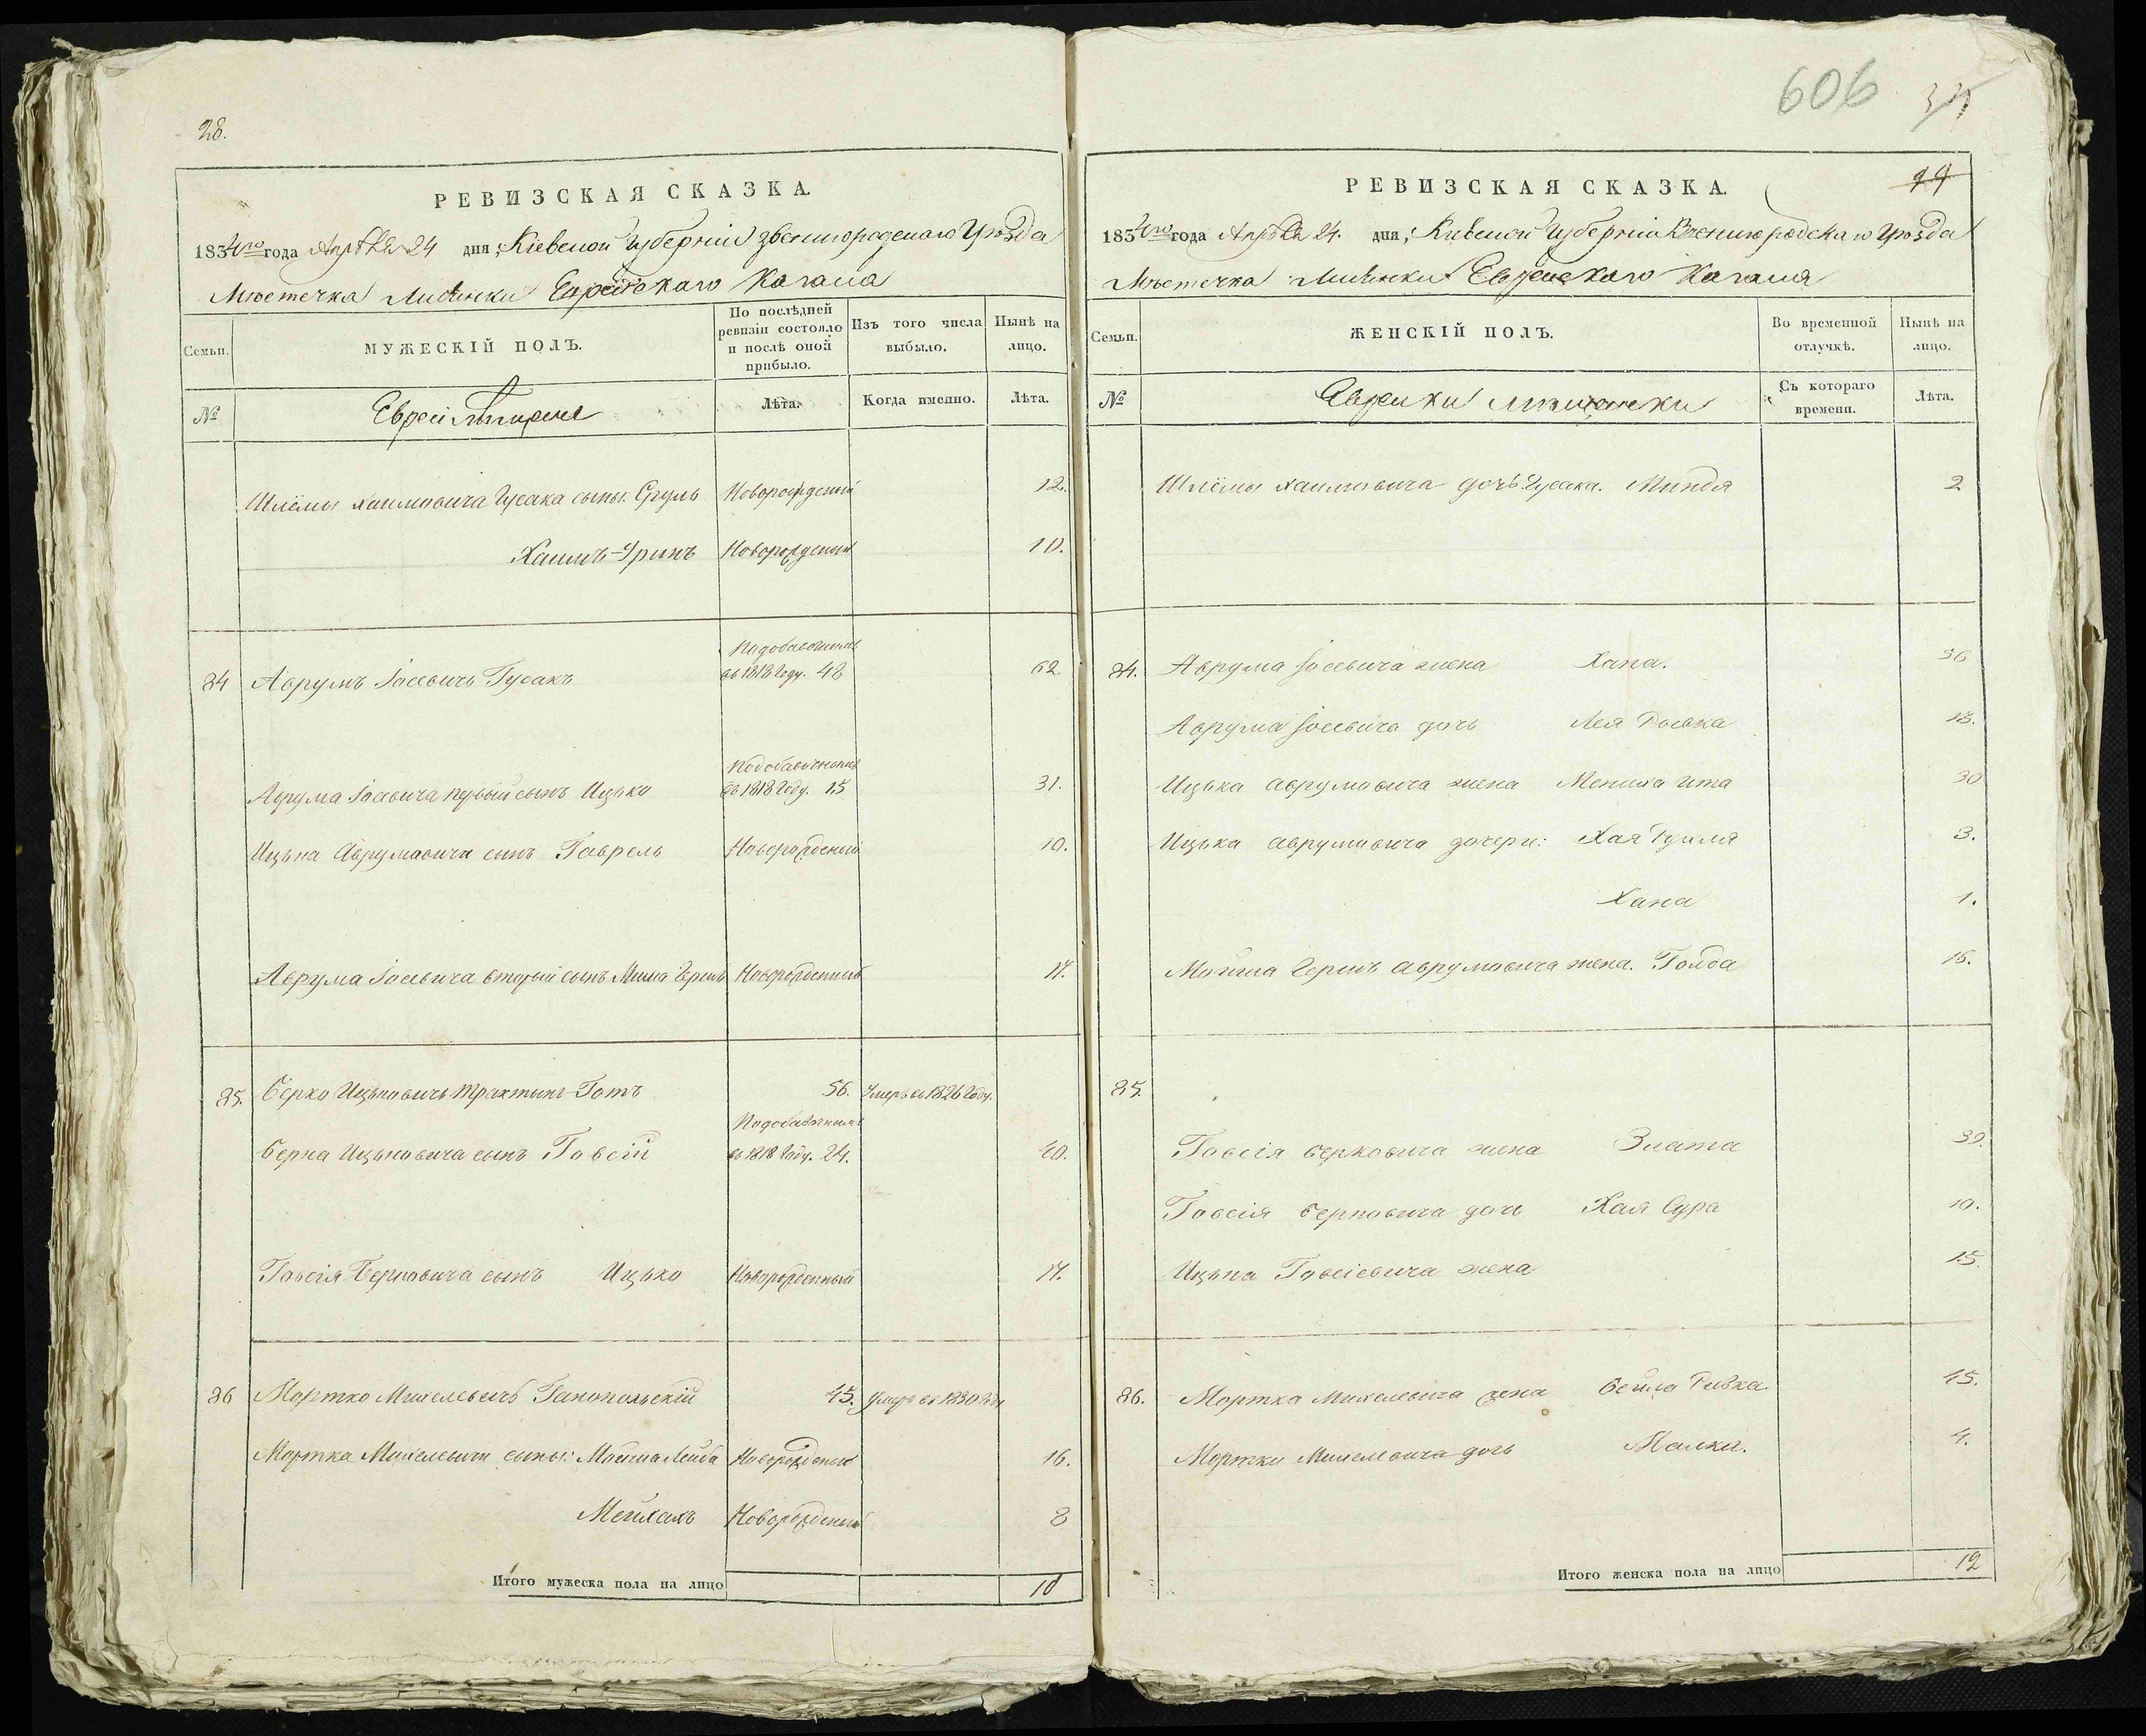 28.
РЕВИЗСКАЯ СКАЗКА.
1834го года Апрѣля 24 дня; Кіевской Губерніи Звенигородскаго Уѣзда
Мѣстечка Лисянки Еврейскаго Кагала
Семьи.
МУЖЕСКІЙ ПОЛЪ.
По послѣдней ревизіи состояло и послѣ оной прибыло.
Изъ того числа выбыло.
Нынѣ на лицо.
№
Евреи Мѣщане
Лѣта.
Когда именно.
Лѣта.
Шлёмы Хаимовича Гусака сыны: Сруль Новорожденый 12.
Хаимъ-Уринъ Новорожденый 10.
84 Аврумъ Іосевичъ Гусакъ въ 1818 Году. 48 62.
Аврума Іосевича первый сынъ Ицько въ 1818 Году. 15 31.
Ицька Аврумовича сынъ Гаврель Новорожденый 10.
Аврума Іосевича вторый сынъ Мошка Гершъ Новорожденный 17.
85. Берко Ицьковичъ 56. Умеръ въ 1826 Году.
Берка Ицьковича сынъ Говсій въ 1818 Году. 24. 40.
Говсія Берковича сынъ Ицько Новорожденный 17.
86 Мортко Михелевичъ 45. Умеръ въ 1830 Году
Мортка Михелевича сыны: Мошка Лейба Новорожденый 16.
Мейлахъ Новорожденый 8
Итого мужеска пола на лицо 10
606
РЕВИЗСКАЯ СКАЗКА.
19
1834го года Апрѣля 24. дня; Кіевской Губерніи Звенигородскаго Уѣзда
Мѣстечка Лисянки Еврейскаго Кагала
Семьи.
ЖЕНСКІЙ ПОЛЪ.
Во временной отлучкѣ.
Нынѣ на лицо.
№
Еврейки мѣщанки
Съ котораго времени.
Лѣта.
Шлёмы Хаимовича дочь Гусака. Миндя 2
84. Аврума Іосевича жена Хана. 36
Аврума Іосевича дочь Лея 13.
Ицька Аврумовича жена Ита 30
Ицька Аврумовича дочери: Хая 3.
Хана 1.
Гершъ Аврумовича жена. Голда 16.
85.
Говсія Берковича жена Злата 39.
Говсія Берковича дочь Хая Сура 10.
Ицька Говсіевича жена 15.
86. Мортка Михелевича жена Бейла Ривка. 45.
Мортки Михелевича дочь Малка. 4.
Итого женска пола на лицо 12